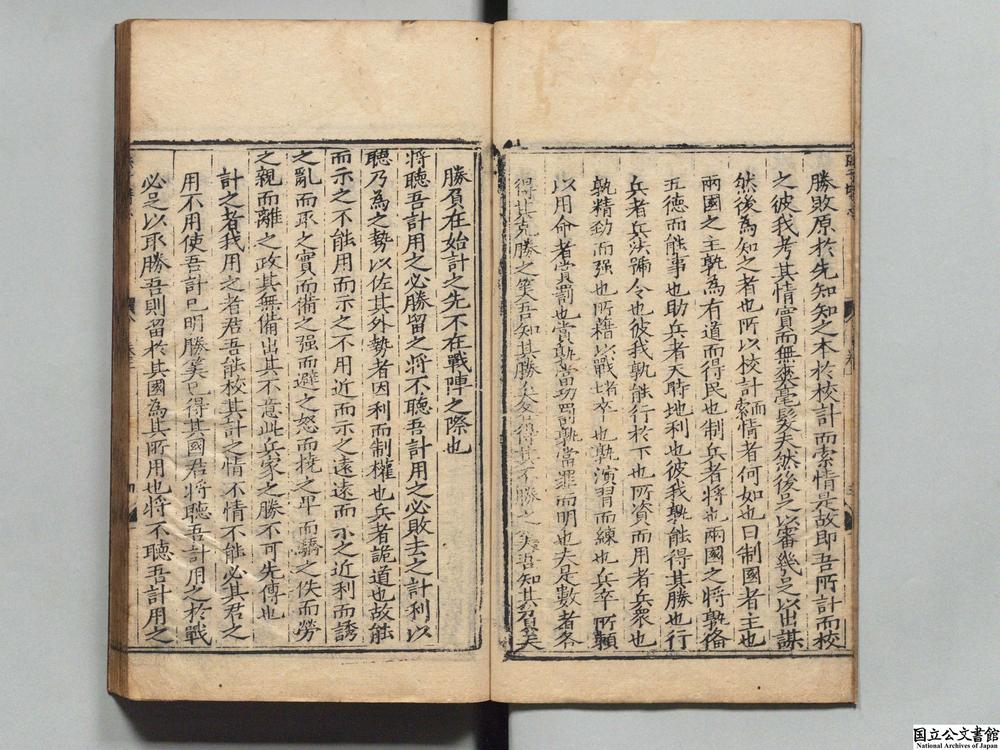 勝敗原於先知知之本於校計而索情是故即吾所計而校
之彼我考其情實而無爽毫髮夫然後足以審幾足以出謀
然後為知之者也所以校計而索情者何如也曰制國者主也
兩國之主孰為有道而得民也制兵者將也兩國之將孰備
五德而能事也助兵者天時地利也彼我孰能得其勝也行
兵者兵法號令也彼我孰能行於下也所資而用者兵衆也
孰精勁而强也所藉以戰者卒也孰演習而練也兵卒所賴
以用命者賞罰也賞孰當功罰孰當罪而明也夫是數者各
得其克勝之筭吾知其勝矣各得其不勝之筭吾知其負矣
勝負在始計之先不在戰陣之際也
將聽吾計用之必勝留之將不聽吾計用之必敗去之計利以
聽乃為之勢以佐其外勢者因利而制權也兵者詭道也故能
而示之不能用而示之不用近而示之遠遠而示之近利而誘
之亂而取之實而備之强而避之怒而撓之卑而驕之佚而勞
之親而離之攻其無備出其不意此兵家之勝不可先傳也
計之者我用之者君吾能校其計之情不情不能必其君之
用不用使吾計已明勝筭已得其國君將聽吾計用之於戰
必足以取勝吾則留於其國為其所用也將不聽吾計用之
国立公文書館
National Archives of Japan